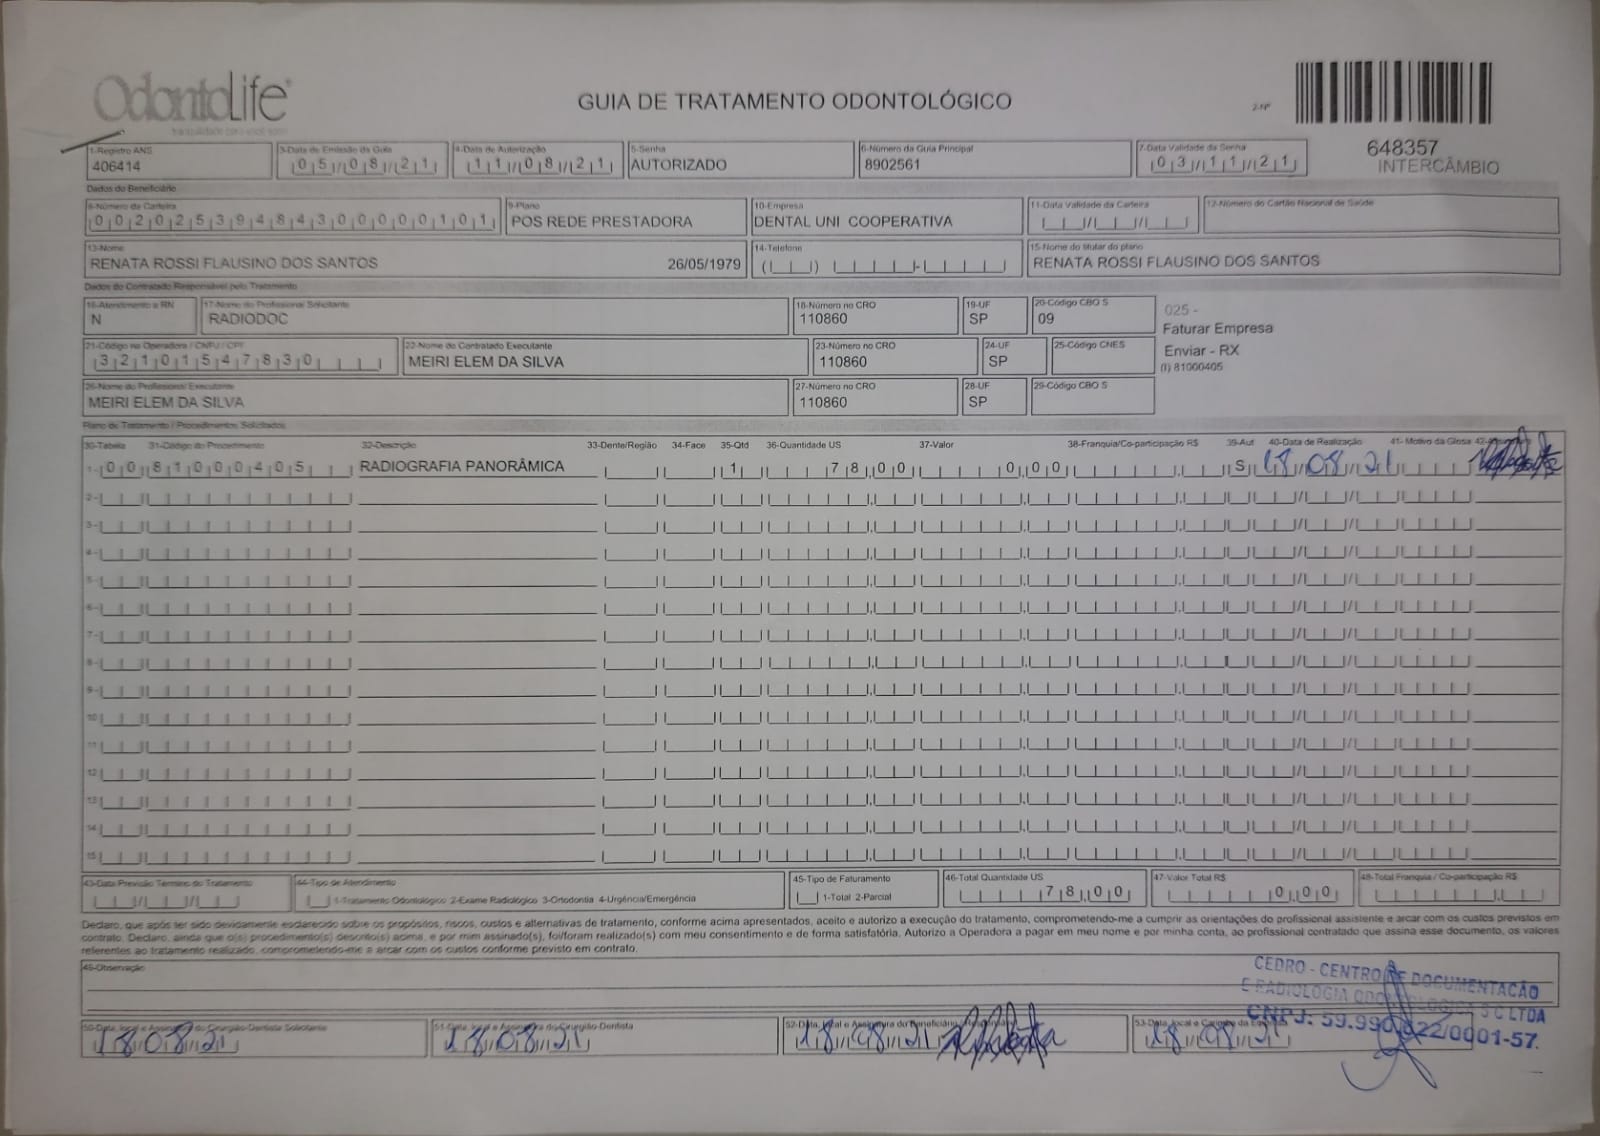 OdontoLife
tranquilidade para você sorrir
GUIA DE TRATAMENTO ODONTOLÓGICO
2-Nº
648357
INTERCÂMBIO
1-Registro ANS 3-Data de Emissão da Guia 4-Data de Autorização 5-Senha 6-Número da Guia Principal 7-Data Validade da Senha
406414 05/08/21 11/08/21 AUTORIZADO 8902561 03/11/21
Dados do Beneficiário
8-Número da Carteira 9-Plano 10-Empresa 11-Data Validade da Carteira 12-Número do Cartão Nacional de Saúde
00202539484300000101 POS REDE PRESTADORA DENTAL UNI COOPERATIVA
13-Nome 14-Telefone 15-Nome do titular do plano
RENATA ROSSI FLAUSINO DOS SANTOS 26/05/1979 RENATA ROSSI FLAUSINO DOS SANTOS
Dados do Contratado Responsável pelo Tratamento
16-Atendimento a RN 17-Nome do Profissional Solicitante 18-Número no CRO 19-UF 20-Código CBO S
N RADIODOC 110860 SP 09
025 -
Faturar Empresa
Enviar - RX
(I) 81000405
21-Código na Operadora / CNPJ / CPF 22-Nome do Contratado Executante 23-Número no CRO 24-UF 25-Código CNES
32101547830 MEIRI ELEM DA SILVA 110860 SP
26-Nome do Profissional Executante 27-Número no CRO 28-UF 29-Código CBO S
MEIRI ELEM DA SILVA 110860 SP
Plano de Tratamento / Procedimentos Solicitados
30-Tabela 31-Código do Procedimento 32-Descrição 33-Dente/Região 34-Face 35-Qtd 36-Quantidade US 37-Valor 38-Franquia/Co-participação R$ 39-Aut 40-Data de Realização 41- Motivo da Glosa
1- 00 81000405 RADIOGRAFIA PANORÂMICA 1 78,00 0,00 S 18/08/21
2-
3-
4-
5-
6-
7-
8-
9-
10
11
12
13
14
15
43-Data Previsão Término do Tratamento 44-Tipo de Atendimento 45-Tipo de Faturamento 46-Total Quantidade US 47-Valor Total R$ 48-Total Franquia / Co-participação R$
1-Tratamento Odontológico 2-Exame Radiológico 3-Ortodontia 4-Urgência/Emergência 1-Total 2-Parcial 78,00 0,00
Declaro, que após ter sido devidamente esclarecido sobre os propósitos, riscos, custos e alternativas de tratamento, conforme acima apresentados, aceito e autorizo a execução do tratamento, comprometendo-me a cumprir as orientações do profissional assistente e arcar com os custos previstos em
contrato. Declaro, ainda que o(s) procedimento(s) descrito(s) acima, e por mim assinado(s), foi/foram realizado(s) com meu consentimento e de forma satisfatória. Autorizo a Operadora a pagar em meu nome e por minha conta, ao profissional contratado que assina esse documento, os valores
referentes ao tratamento realizado, comprometendo-me a arcar com os custos conforme previsto em contrato.
49-Observação
CEDRO - CENTRO DE DOCUMENTAÇÃO
E RADIOLOGIA ODONTOLOGICA S C LTDA
CNPJ: 59.990.822/0001-57.
50-Data, local e Assinatura do Cirurgião-Dentista Solicitante 51-Data, local e Assinatura do Cirurgião-Dentista 52-Data, local e Assinatura do Beneficiário/Responsável 53-Data, local e Carimbo da Empresa
18/08/21 18/08/21 18/08/21 18/08/21